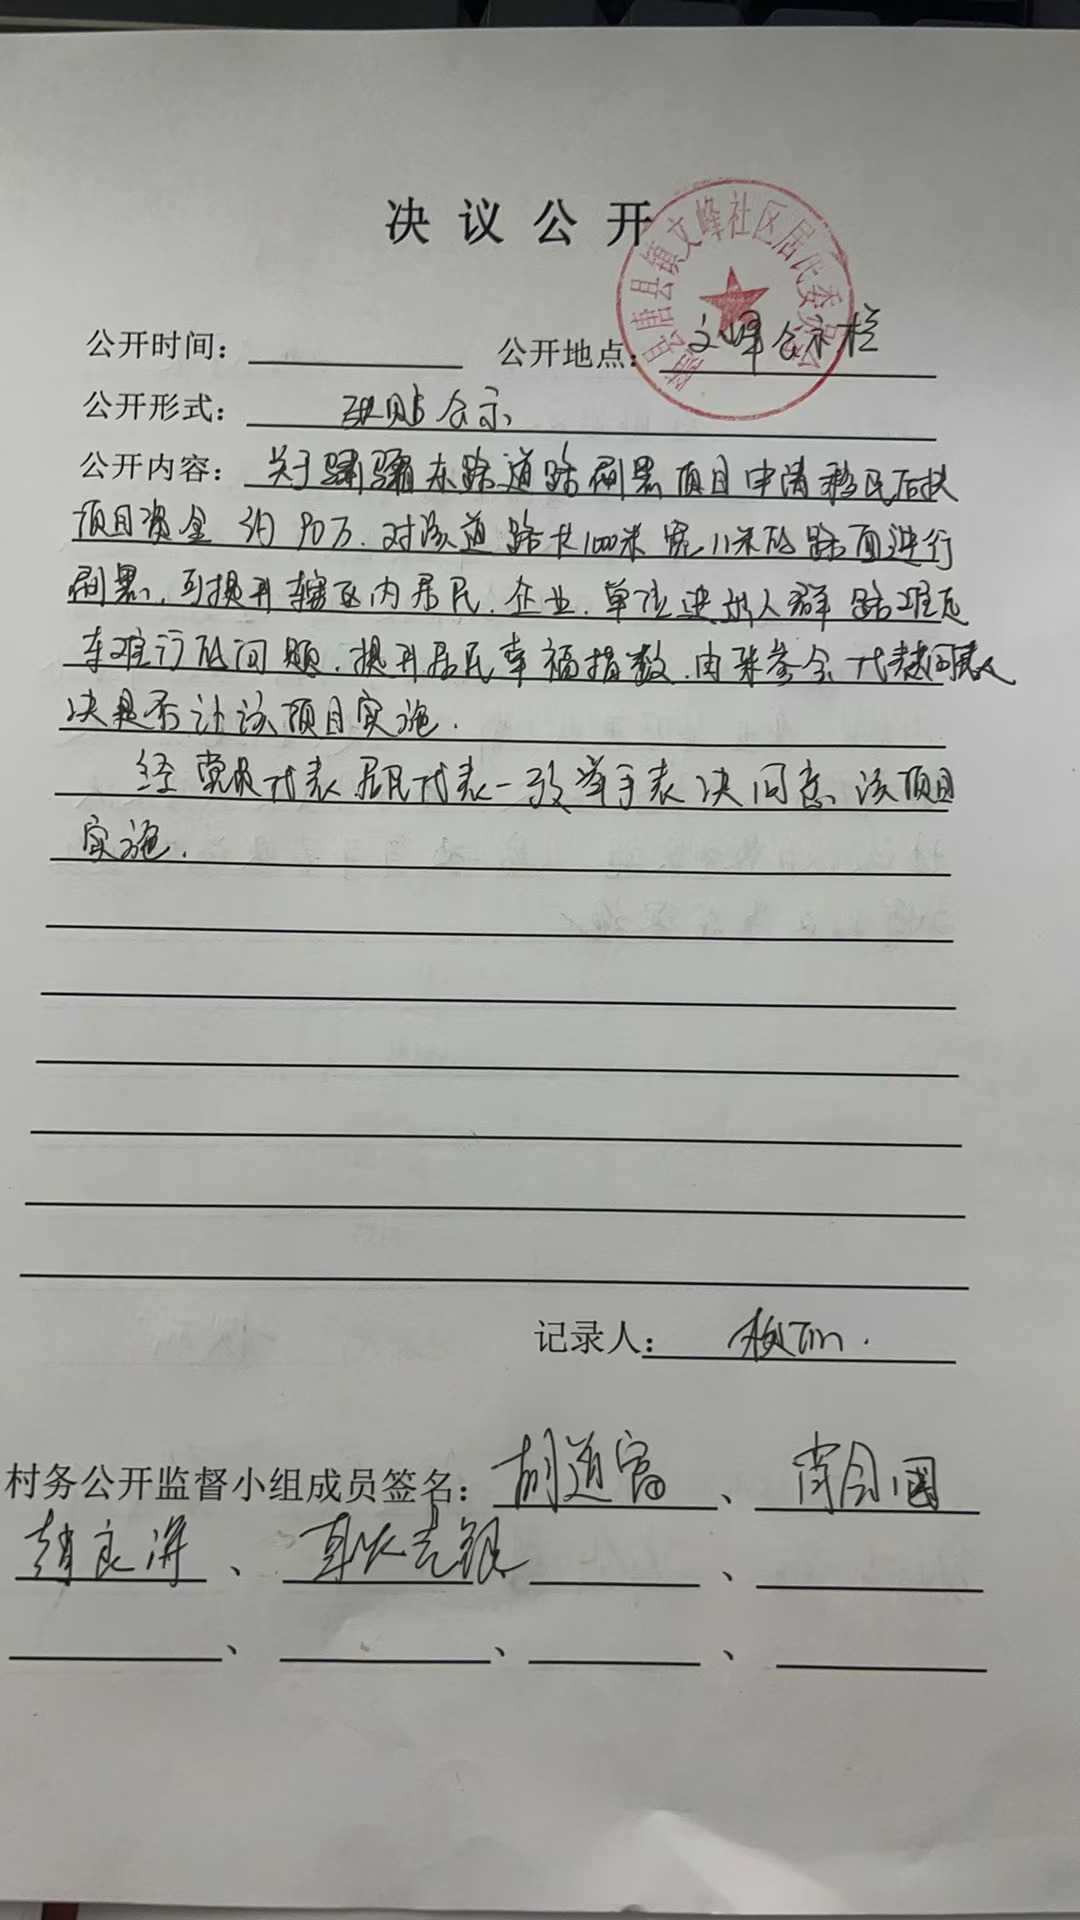 决议公开
随县唐县镇文峰社区居民委员会
公开时间: 公开地点: 文峰公示栏
公开形式: 张贴公示
公开内容: 关于骕骦东路道路刷黑项目申请移民后扶
项目资金约90万.对该道路长1000米宽11米的路面进行
刷黑.可提升辖区内居民.企业.单位进出人群路难走
车难行的问题.提升居民幸福指数.由来参会代表表
决是否让该项目实施.
经党员代表居民代表一致举手表决同意该项目
实施.
记录人:
村务公开监督小组成员签名: 胡道富、肖合国
赵良海、